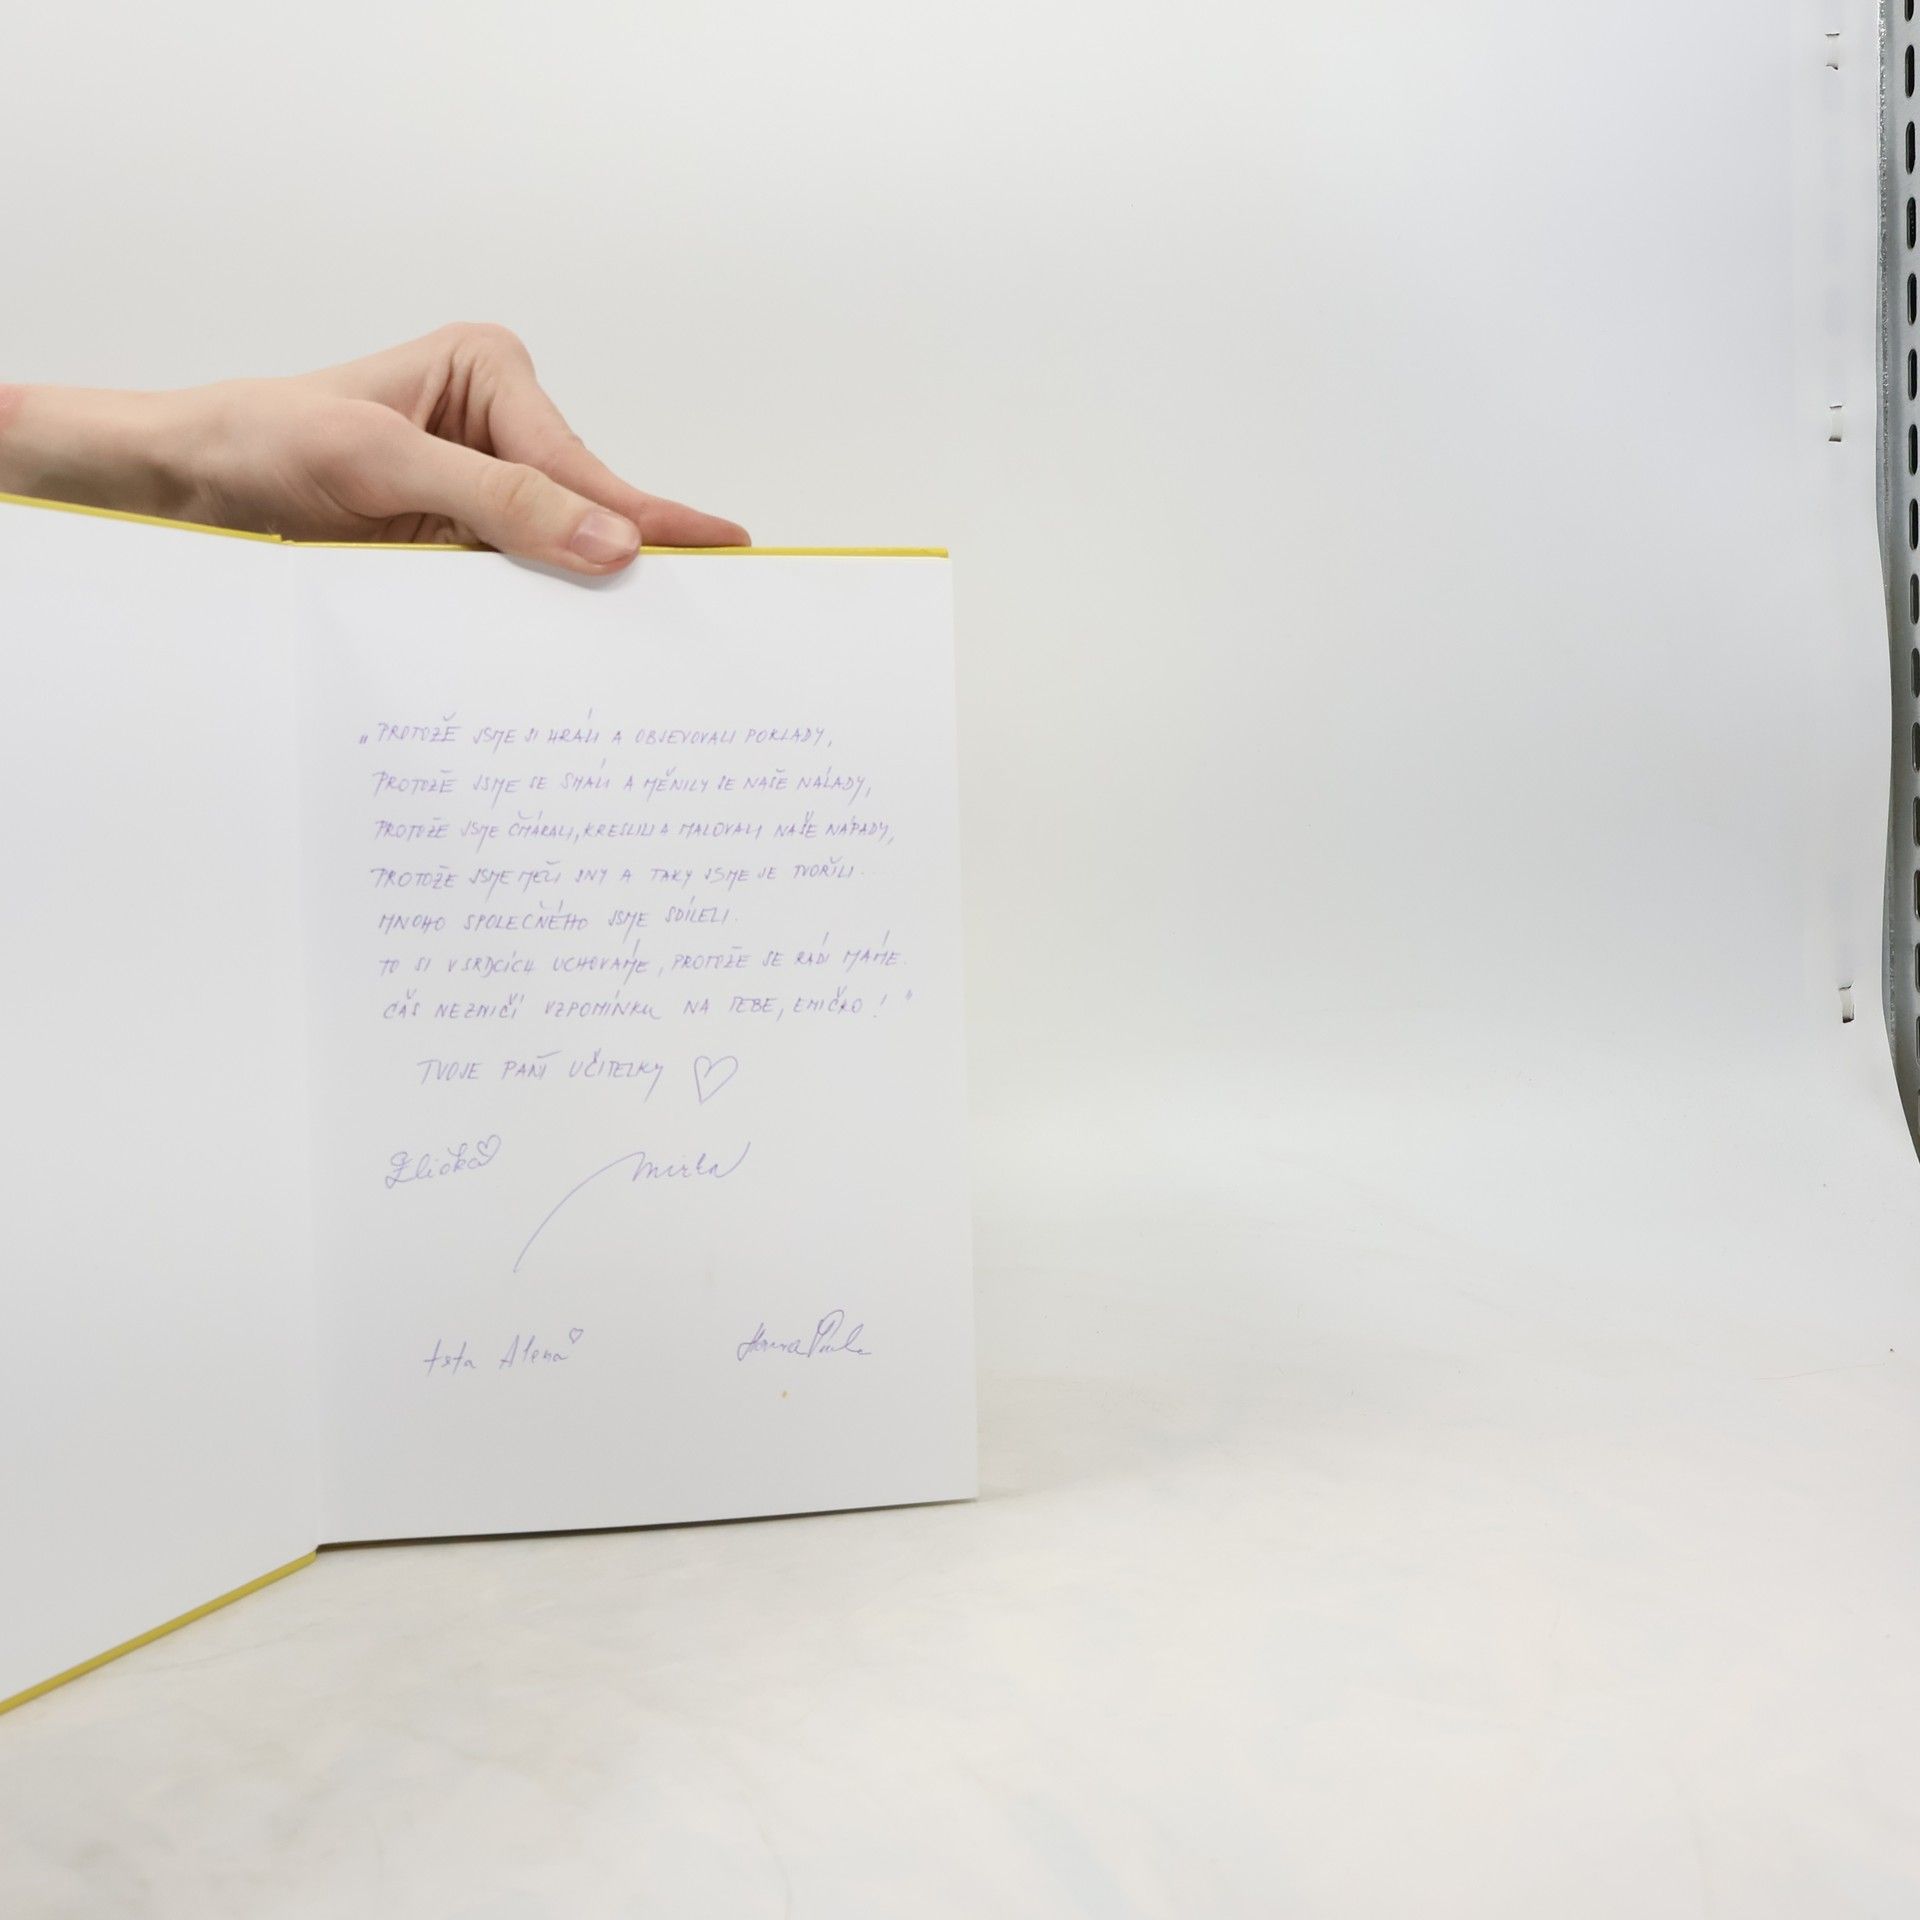 „PROTOŽE JSME SI HRÁLI A OBJEVOVALI POKLADY,
PROTOŽE JSME SE SMÁLI A MĚNILY SE NAŠE NÁLADY,
PROTOŽE JSME ČMÁRALI, KRESLILI A MALOVALI NAŠE NÁPADY,
PROTOŽE JSME MĚLI SNY A TAKY JSME SE TVOŘILI...
MNOHO SPOLEČNÉHO JSME SDÍLELI.
TO SI V SRDCÍCH UCHOVÁME, PROTOŽE SE RÁDI MÁME.
ČAS NEZNIČÍ VZPOMÍNKU NA TEBE, EMIČKO!"
TVOJE PANÍ UČITELKY ♡
Elička♡ Mirka
teta Alena♡ Hana